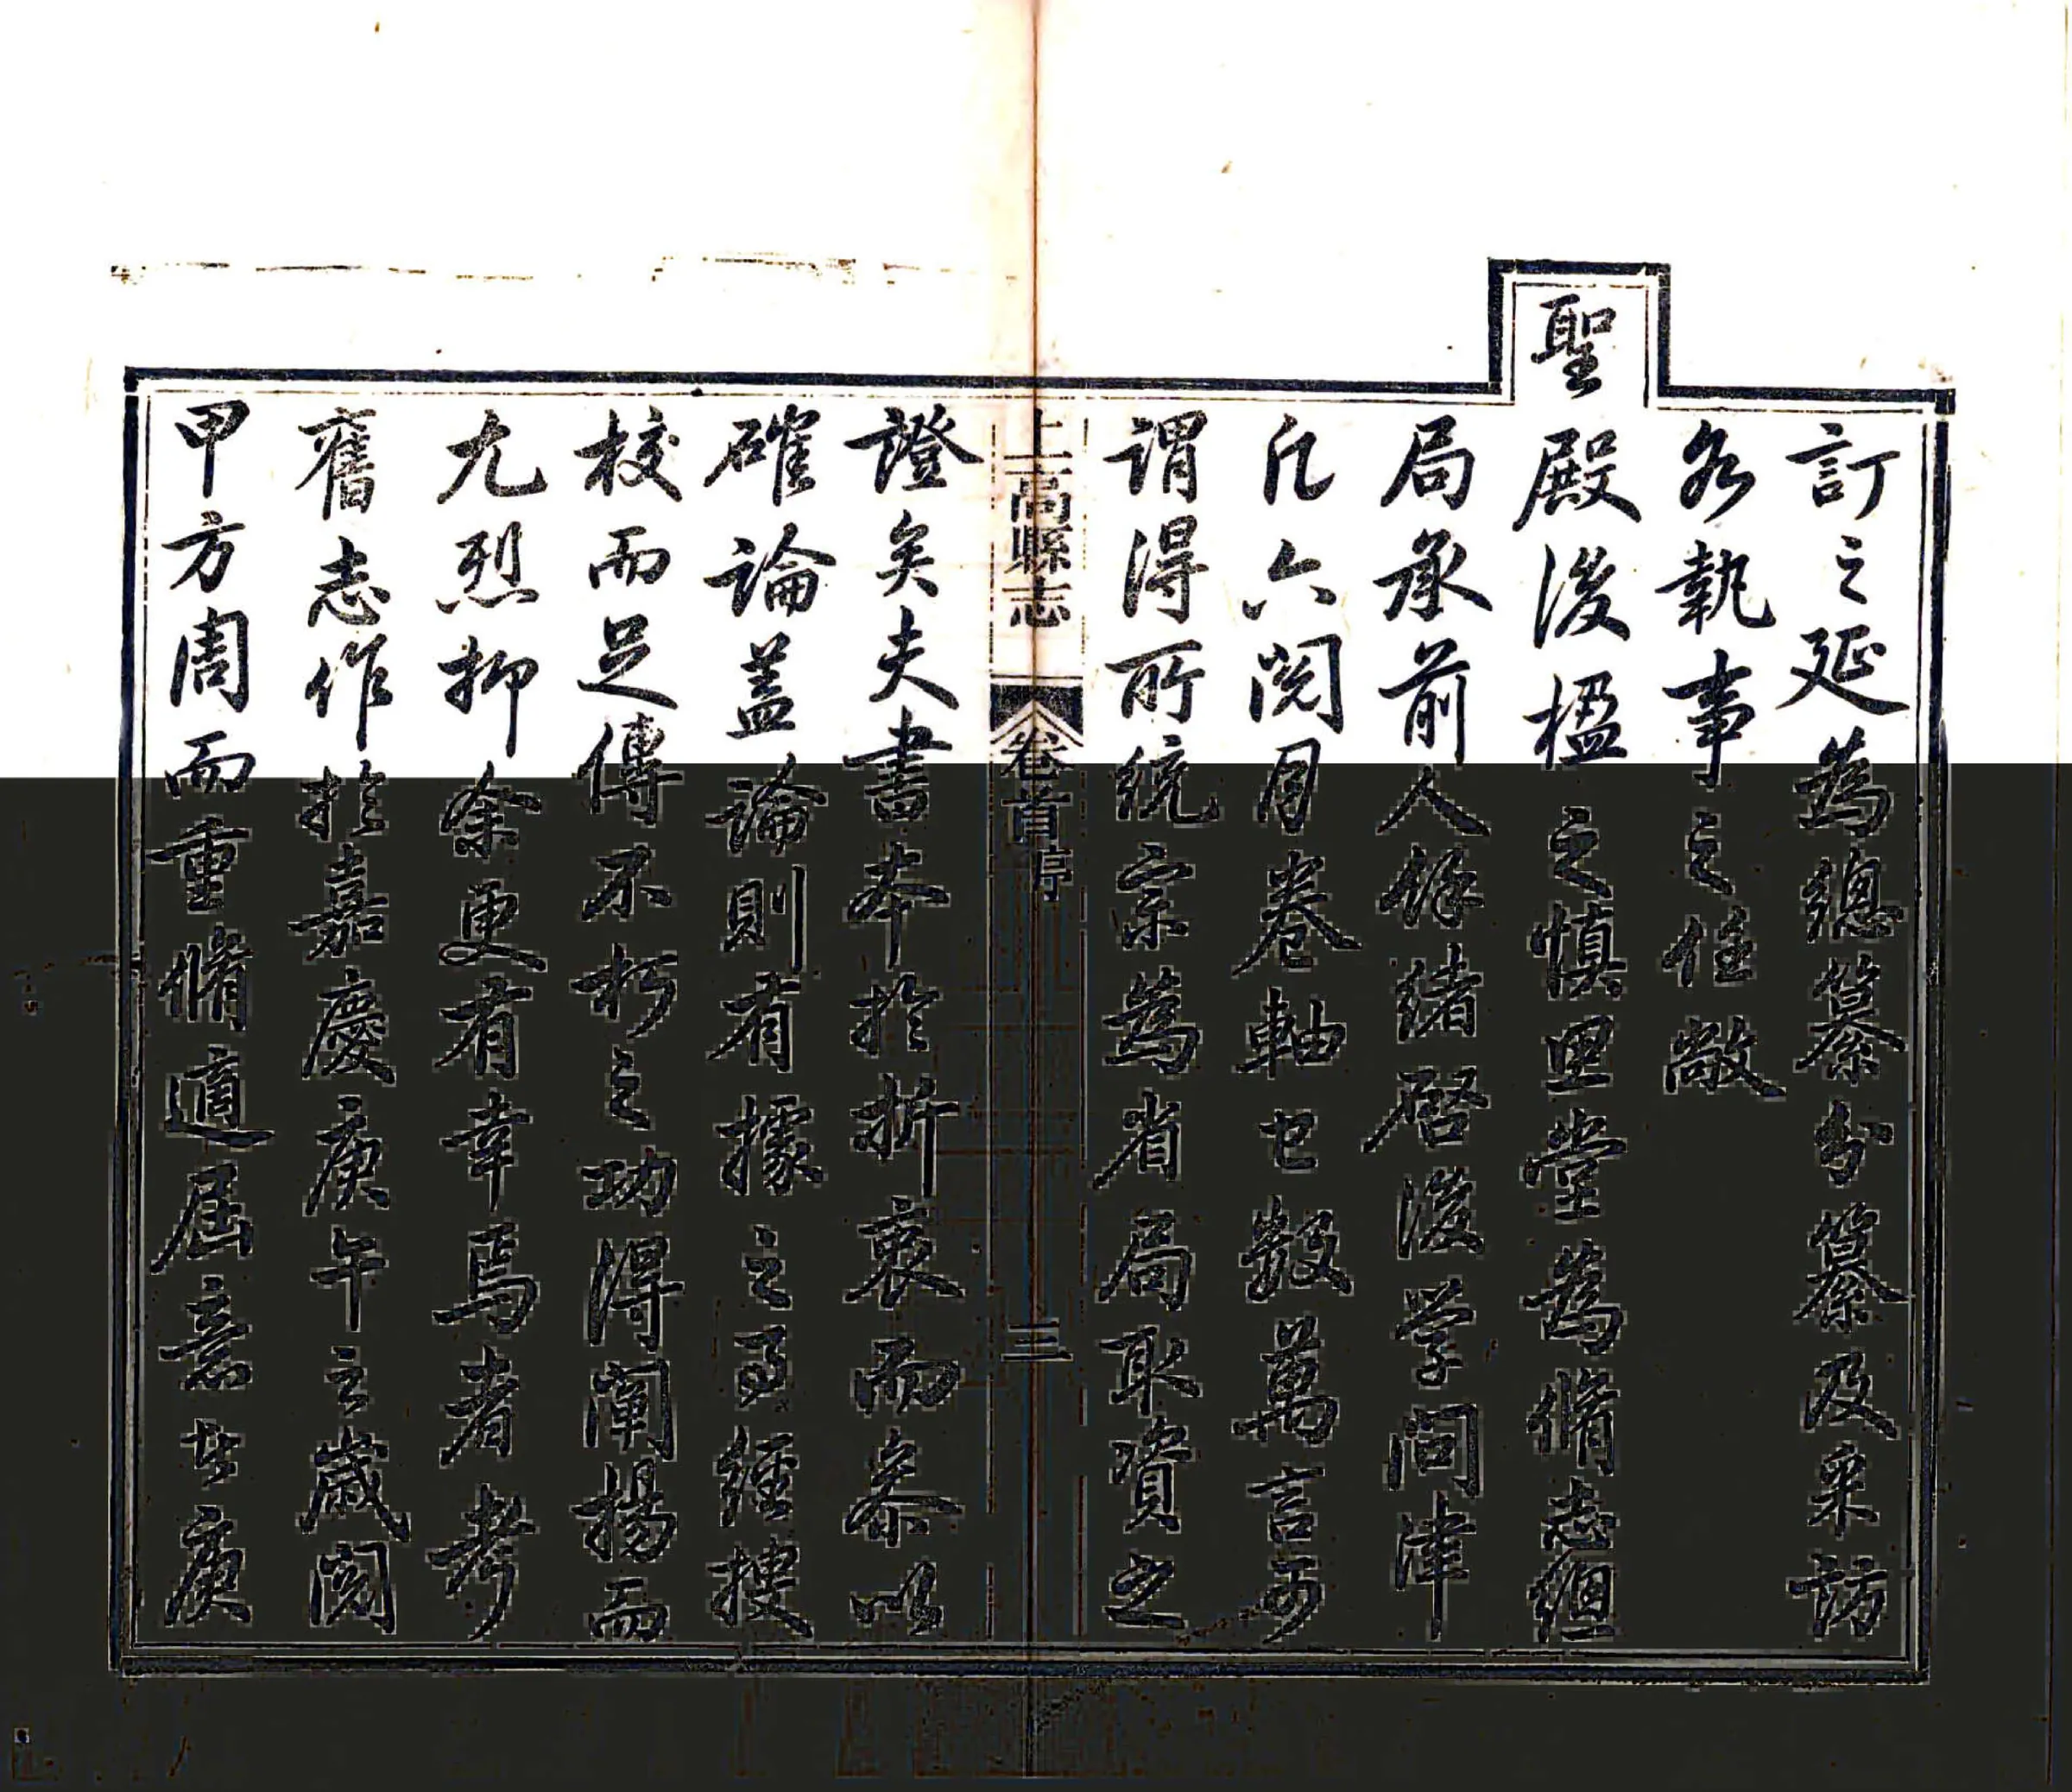 訂之延為總纂分纂及采訪
各執事之任敞
聖殿後楹之慎思堂為脩志總
局承前人餘緒啓後学問津
凡六閱月卷軸已數萬言可
謂得所統宗為省局取資之
上高縣志
卷首序
三
證矣夫書本於折衷而叅以
確論蓋論則有據之了經搜
校而足傳不朽之功得闡揚而
尤烈抑余更有幸焉者考
舊志作於嘉慶庚午之歲閱
甲方周而重脩適屆意者庚